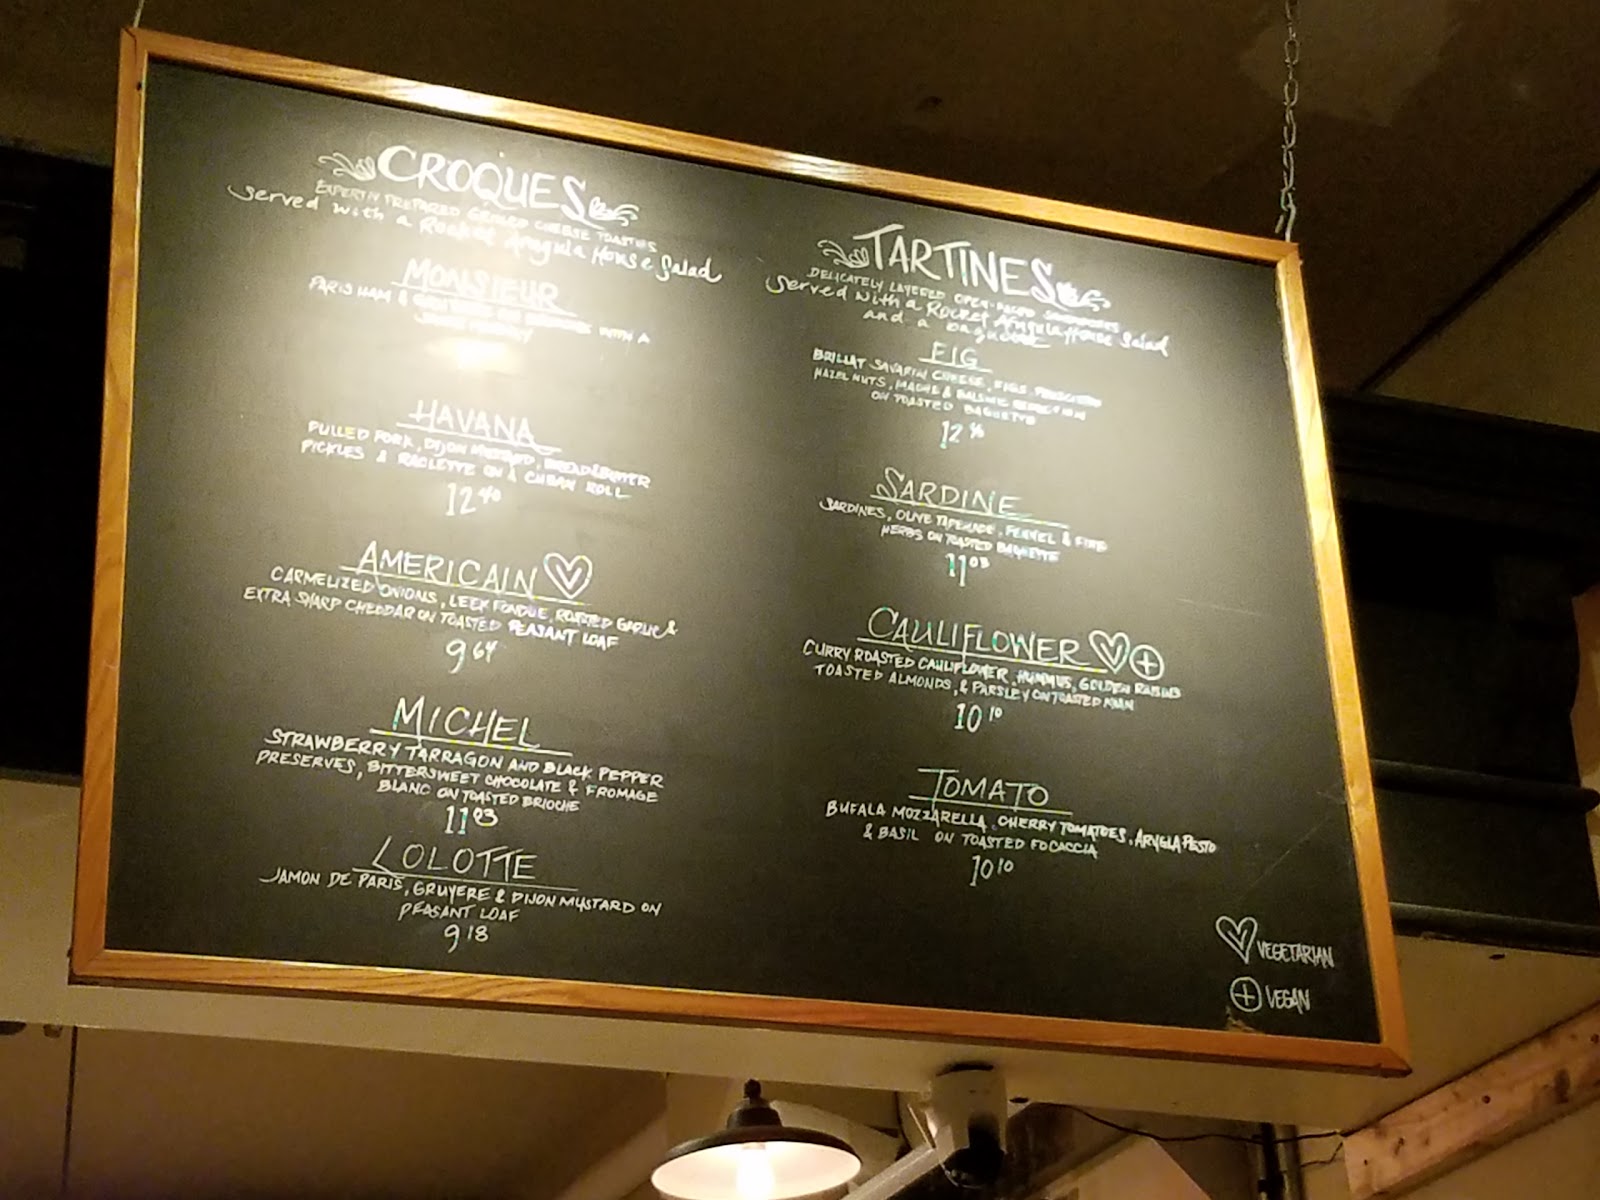 CROQUES
EXPERTLY PREPARED GRILLED CHEESE TOASTIES
Served with a Rocket Arugula House Salad
MONSIEUR
PARIS HAM & WITH A
HAVANA
PULLED PORK, DIJON MUSTARD, BREAD & BUTTER
PICKLES & RACLETTE ON A CUBAN ROLL
12 40
AMERICAIN
CARMELIZED ONIONS, LEEK FONDUE, ROASTED GARLIC &
EXTRA SHARP CHEDDAR ON TOASTED PEASANT LOAF
9 64
MICHEL
STRAWBERRY TARRAGON AND BLACK PEPPER
PRESERVES, BITTERSWEET CHOCOLATE & FROMAGE
BLANC ON TOASTED BRIOCHE
11 03
LOLOTTE
JAMON DE PARIS, GRUYERE & DIJON MUSTARD ON
PEASANT LOAF
9 18
TARTINES
DELICATELY LAYERED OPEN-FACED SANDWICHES
Served with a Rocket Arugula House Salad
and a baguette
FIG
BRILLAT SAVARIN CHEESE, FIGS, PROSCIUTTO
HAZELNUTS, MACHE & BALSMIC REDUCTION
ON TOASTED BAGUETTE
12
SARDINE
SARDINES, OLIVE TAPENADE, FENNEL & FINE
HERBS ON TOASTED BAGUETTE
11 03
CAULIFLOWER
CURRY ROASTED CAULIFLOWER, HUMMUS, GOLDEN RAISINS
TOASTED ALMONDS, & PARSLEY ON TOASTED NAAN
10 10
TOMATO
BUFALA MOZZARELLA, CHERRY TOMATOES, ARUGLA PESTO
& BASIL ON TOASTED FOCACCIA
10 10
VEGETARIAN
VEGAN